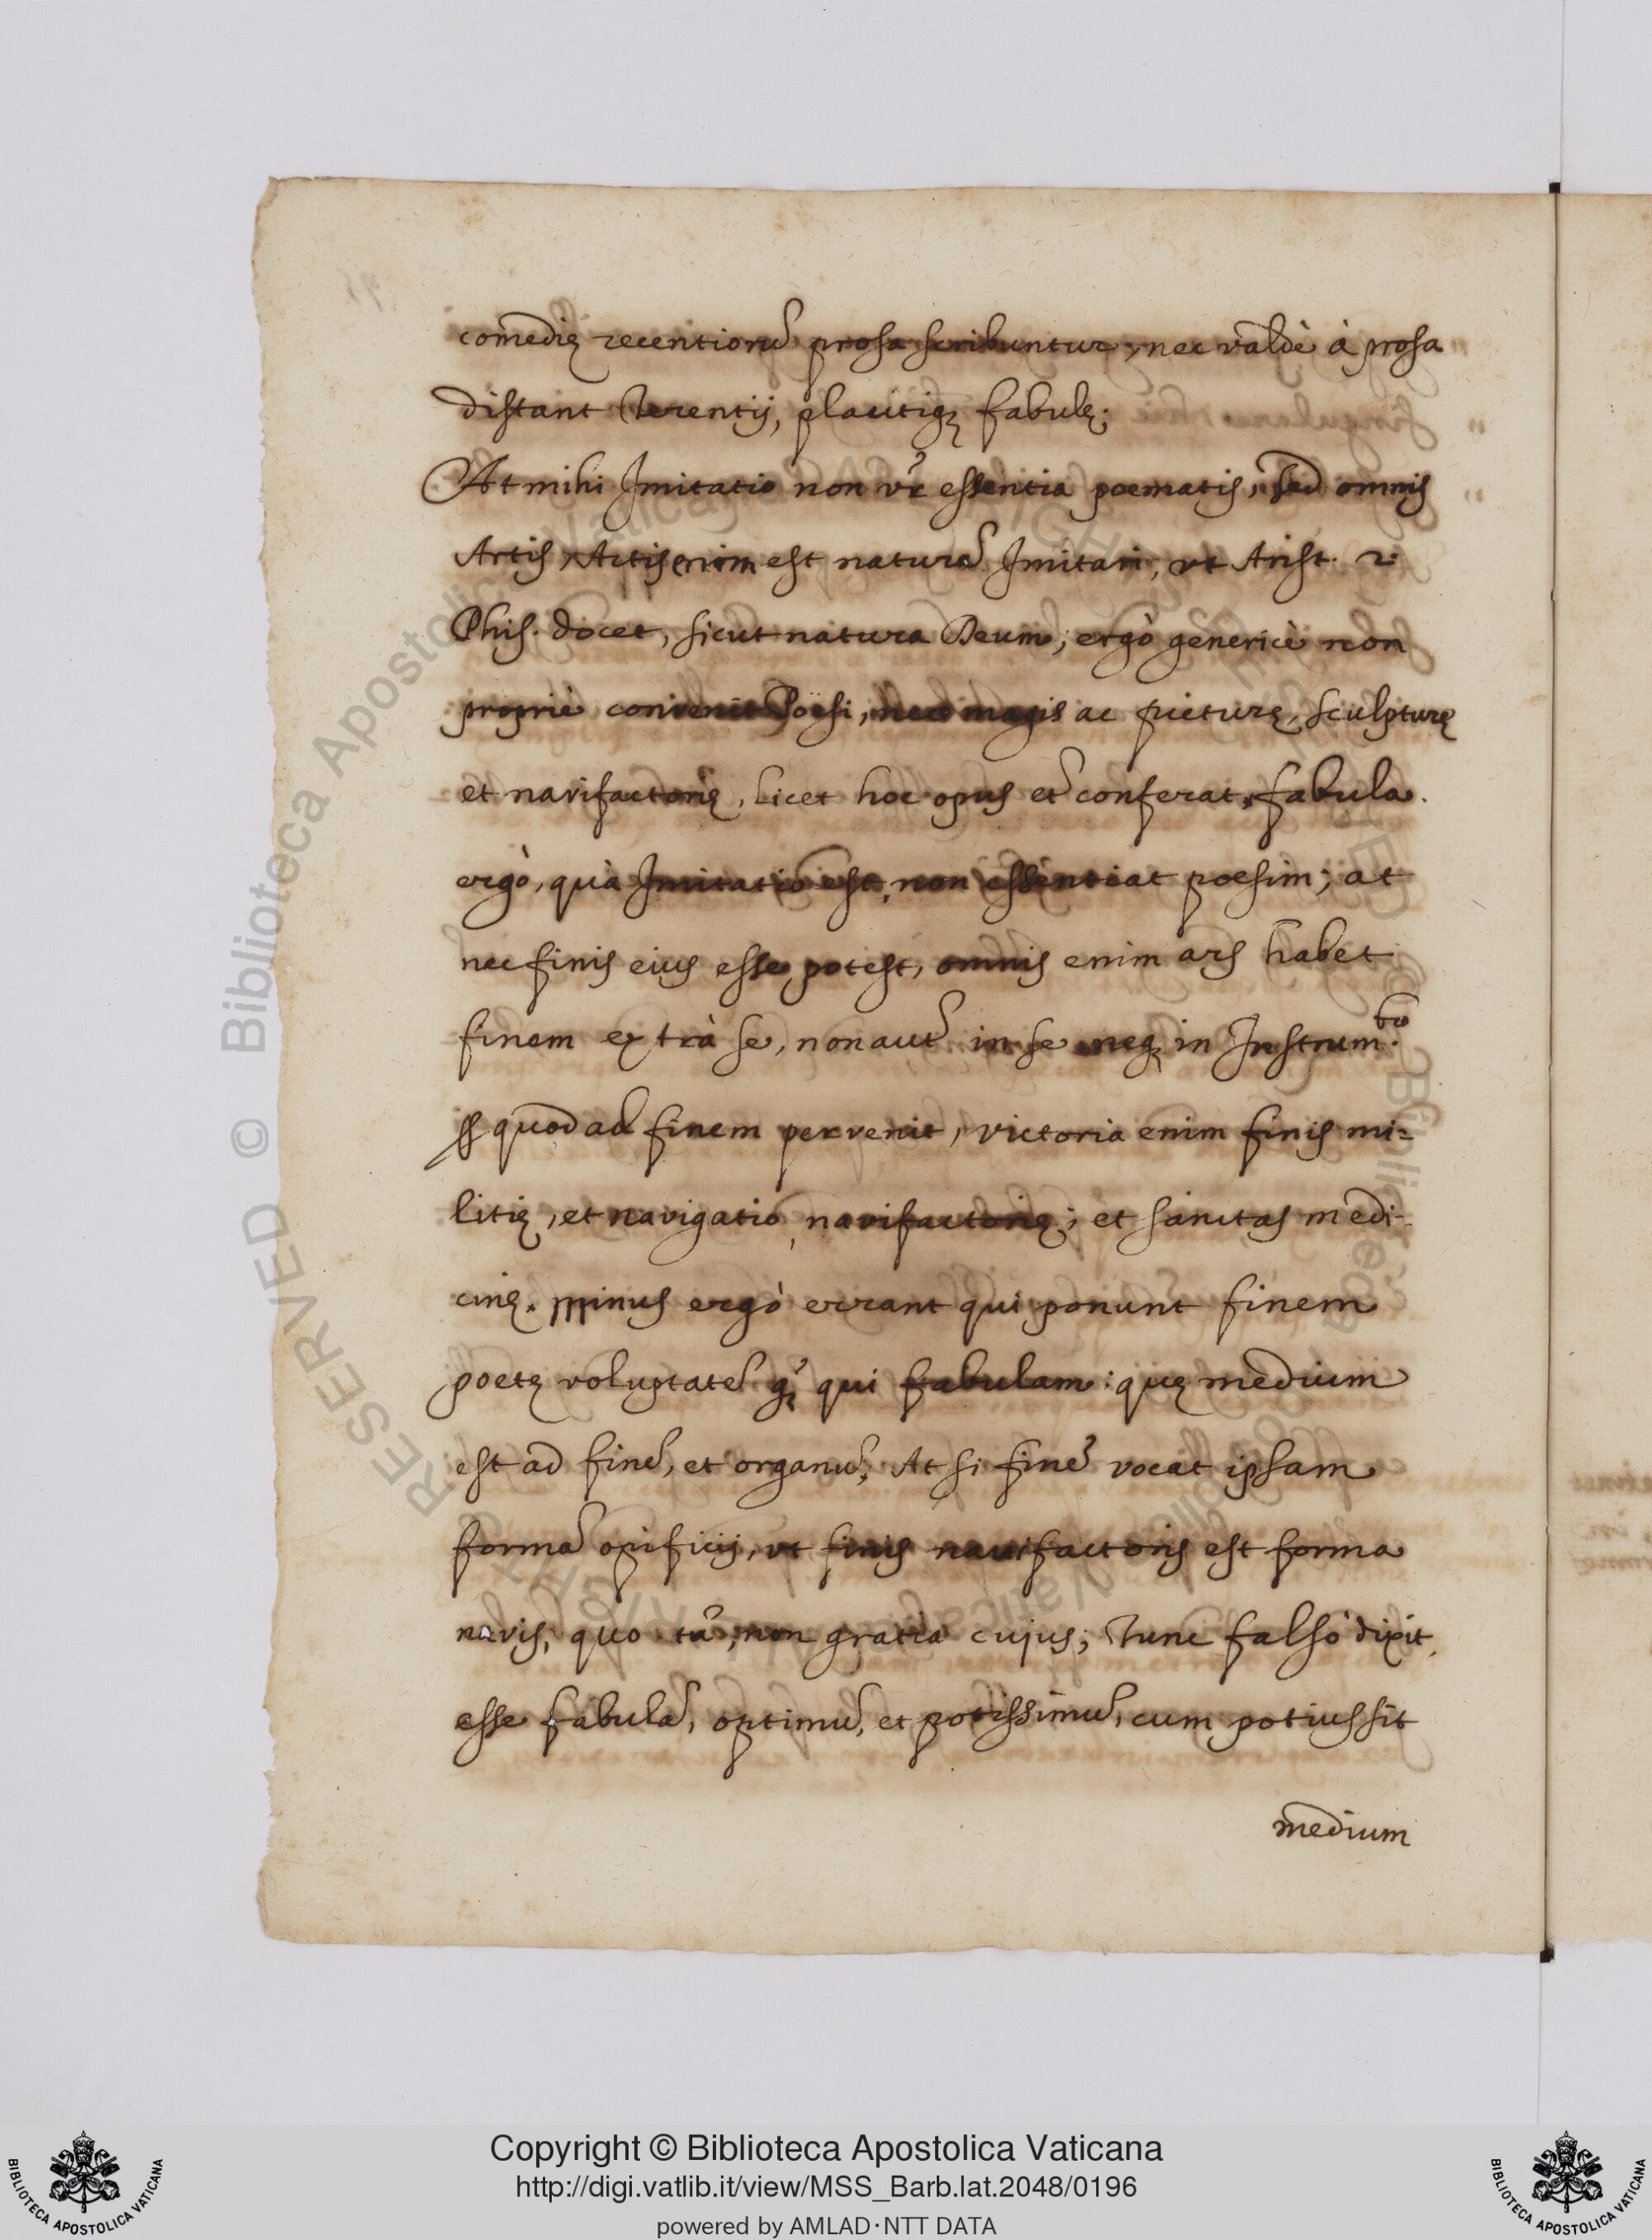 comedię recentiorũ prosa scribuntur, nec valdè à prosa
distant Terentij, plautiqꝫ fabulę.
At mihi Imitatio non vr̃ essentia poematis, sed omnis
Artis, Artis enim est naturã Imitari, vt Arist. 2.
Phis. docet, sicut natura Deum, ergò genericè non
propriè convenit Poesi, nec magis ac picturę, sculpturę
et navifactorię, licet hoc opus ei conferat, fabula
ergò, quà Imitatio est, non essentiat poesim; at
nec finis eius esse potest, omnis enim ars habet
finem extrà se, non autẽ in se neqꝫ in Instrumᵗᵒ.
quod ad finem pervenit, victoria enim finis mi=
litię, et navigatio, navifactorię; et sanitas medi-
cinę. Minus ergò errant qui ponunt finem
poetę voluptatẽ qꝫ̃ qui fabulam: quę medium
est ad finẽ, et organũ. At si finẽ vocat ipsam
formã opificij, vt finis navifactoris est forma
navis, quo tñ, non gratia cujus; Tunc falsò dixit
esse fabulã, optimũ, et potissimũ, cum potius sit
medium
© Biblioteca Apostolica Vaticana ALL RIGHTS RESERVED
Copyright © Biblioteca Apostolica Vaticana
http://digi.vatlib.it/view/MSS_Barb.lat.2048/0196
powered by AMLAD·NTT DATA
BIBLIOTECA APOSTOLICA VATICANA
BIBLIOTECA APOSTOLICA VATICANA